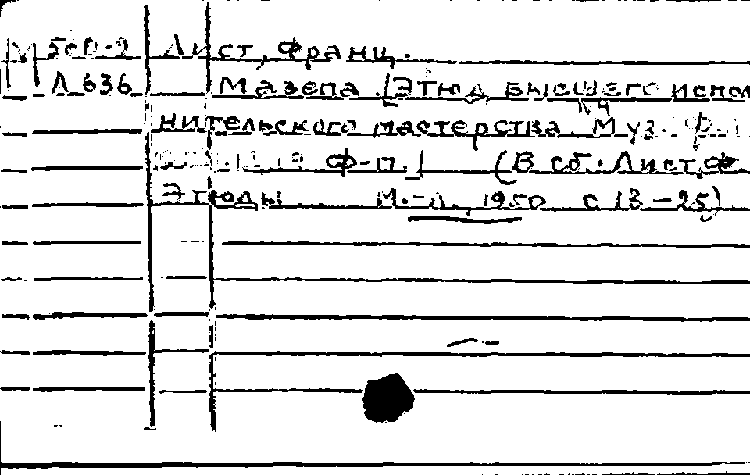 М 5сп-2 Лист, Франц.
Л 636 Мазепа. [Этюд высшего испол
нительского мастерства. Муз. Ф-п
Ф-п.] (В сб.: Лист, Ф.
Этюды М.-Л., 1950 с 13-25)